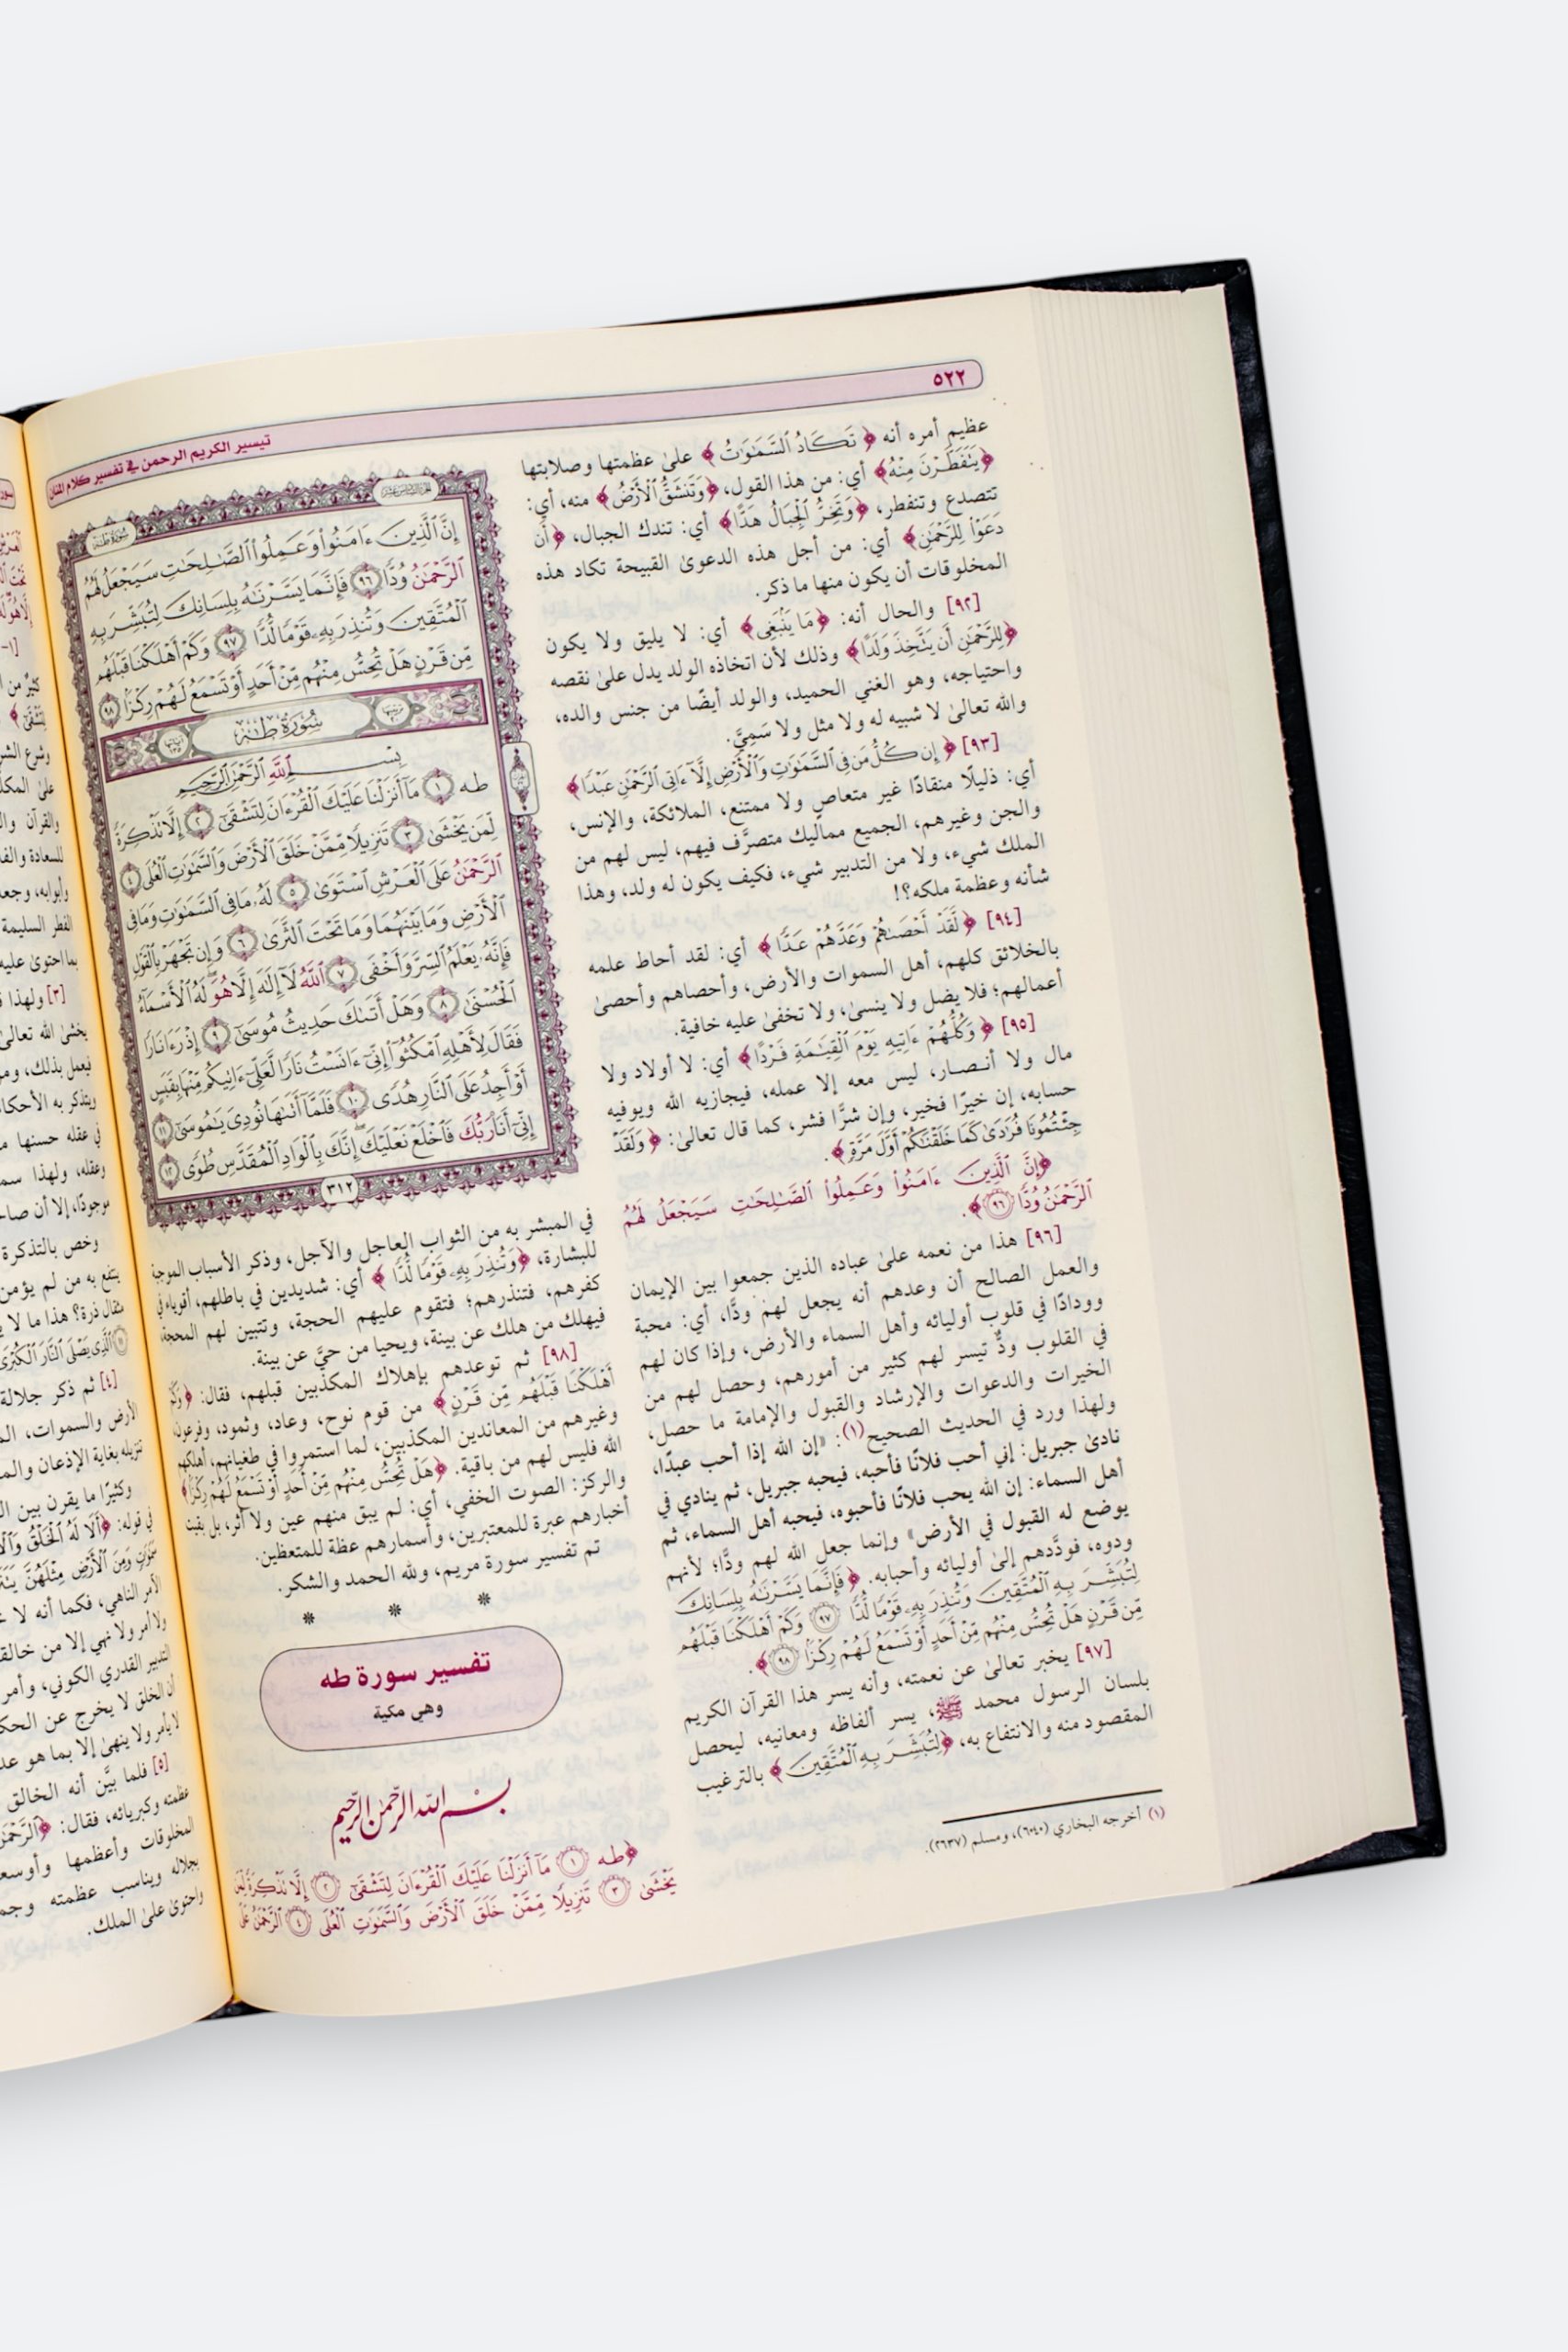 ٥٢٢
تيسير الكريم الرحمن في تفسير كلام المنان
عظيم أمره أنه ﴿تَكَادُ ٱلسَّمَٰوَٰتُ﴾ علىٰ عظمتها وصلابتها
﴿يَتَفَطَّرْنَ مِنْهُ﴾ أي: من هذا القول، ﴿وَتَنشَقُّ ٱلْأَرْضُ﴾ منه، أي:
تتصدع وتنفطر، ﴿وَتَخِرُّ ٱلْجِبَالُ هَدًّا﴾ أي: تندك الجبال، ﴿أَن
دَعَوْا۟ لِلرَّحْمَٰنِ﴾ أي: من أجل هذه الدعوىٰ القبيحة تكاد هذه
المخلوقات أن يكون منها ما ذكر.
[٩٢] والحال أنه: ﴿مَا يَنۢبَغِى﴾ أي: لا يليق ولا يكون
﴿لِلرَّحْمَٰنِ أَن يَتَّخِذَ وَلَدًا﴾ وذلك لأن اتخاذه الولد يدل علىٰ نقصه
واحتياجه، وهو الغني الحميد، والولد أيضًا من جنس والده،
والله تعالىٰ لا شبيه له ولا مثل ولا سَمِيَّ.
[٩٣] ﴿إِن كُلُّ مَن فِى ٱلسَّمَٰوَٰتِ وَٱلْأَرْضِ إِلَّآ ءَاتِى ٱلرَّحْمَٰنِ عَبْدًا﴾
أي: ذليلًا منقادًا غير متعاصٍ ولا ممتنع، الملائكة، والإنس،
والجن وغيرهم، الجميع مماليك متصرَّف فيهم، ليس لهم من
الملك شيء، ولا من التدبير شيء، فكيف يكون له ولد، وهذا
شأنه وعظمة ملكه؟!
[٩٤] ﴿لَّقَدْ أَحْصَىٰهُمْ وَعَدَّهُمْ عَدًّا﴾ أي: لقد أحاط علمه
بالخلائق كلهم، أهل السموات والأرض، وأحصاهم وأحصىٰ
أعمالهم؛ فلا يضل ولا ينسىٰ، ولا تخفىٰ عليه خافية.
[٩٥] ﴿وَكُلُّهُمْ ءَاتِيهِ يَوْمَ ٱلْقِيَٰمَةِ فَرْدًا﴾ أي: لا أولاد ولا
مال ولا أنصار، ليس معه إلا عمله، فيجازيه الله ويوفيه
حسابه، إن خيرًا فخير، وإن شرًّا فشر، كما قال تعالىٰ: ﴿وَلَقَدْ
جِئْتُمُونَا فُرَٰدَىٰ كَمَا خَلَقْنَٰكُمْ أَوَّلَ مَرَّةٍ﴾.
﴿إِنَّ ٱلَّذِينَ ءَامَنُوا۟ وَعَمِلُوا۟ ٱلصَّٰلِحَٰتِ سَيَجْعَلُ لَهُمُ
ٱلرَّحْمَٰنُ وُدًّا ٩٦﴾.
[٩٦] هذا من نعمه علىٰ عباده الذين جمعوا بين الإيمان
والعمل الصالح أن وعدهم أنه يجعل لهم ودًّا، أي: محبة
وودادًا في قلوب أوليائه وأهل السماء والأرض، وإذا كان لهم
في القلوب ودٌّ تيسر لهم كثير من أمورهم، وحصل لهم من
الخيرات والدعوات والإرشاد والقبول والإمامة ما حصل،
ولهذا ورد في الحديث الصحيح(١): «إن الله إذا أحب عبدًا،
نادىٰ جبريل: إني أحب فلانًا فأحبه، فيحبه جبريل، ثم ينادي في
أهل السماء: إن الله يحب فلانًا فأحبوه، فيحبه أهل السماء، ثم
يوضع له القبول في الأرض» وإنما جعل الله لهم ودًّا؛ لأنهم
ودوه، فودَّدهم إلىٰ أوليائه وأحبابه. ﴿فَإِنَّمَا يَسَّرْنَٰهُ بِلِسَانِكَ
لِتُبَشِّرَ بِهِ ٱلْمُتَّقِينَ وَتُنذِرَ بِهِۦ قَوْمًا لُّدًّا ٩٧ وَكَمْ أَهْلَكْنَا قَبْلَهُم
مِّن قَرْنٍ هَلْ تُحِسُّ مِنْهُم مِّنْ أَحَدٍ أَوْ تَسْمَعُ لَهُمْ رِكْزًۢا ٩٨﴾.
[٩٧] يخبر تعالىٰ عن نعمته، وأنه يسر هذا القرآن الكريم
بلسان الرسول محمد ﷺ، يسر ألفاظه ومعانيه، ليحصل
المقصود منه والانتفاع به، ﴿لِتُبَشِّرَ بِهِ ٱلْمُتَّقِينَ﴾ بالترغيب
(١) أخرجه البخاري (٦٠٤٠)، ومسلم (٢٦٣٧).
سُورَةُ طه
إِنَّ ٱلَّذِينَ ءَامَنُوا۟ وَعَمِلُوا۟ ٱلصَّٰلِحَٰتِ سَيَجْعَلُ لَهُمُ
ٱلرَّحْمَٰنُ وُدًّا ٩٦ فَإِنَّمَا يَسَّرْنَٰهُ بِلِسَانِكَ لِتُبَشِّرَ بِهِ
ٱلْمُتَّقِينَ وَتُنذِرَ بِهِۦ قَوْمًا لُّدًّا ٩٧ وَكَمْ أَهْلَكْنَا قَبْلَهُم
مِّن قَرْنٍ هَلْ تُحِسُّ مِنْهُم مِّنْ أَحَدٍ أَوْ تَسْمَعُ لَهُمْ رِكْزًۢا ٩٨
سُورَةُ طه
بِسْمِ ٱللَّهِ ٱلرَّحْمَٰنِ ٱلرَّحِيمِ
طه ١ مَآ أَنزَلْنَا عَلَيْكَ ٱلْقُرْءَانَ لِتَشْقَىٰٓ ٢ إِلَّا تَذْكِرَةً
لِّمَن يَخْشَىٰ ٣ تَنزِيلًا مِّمَّنْ خَلَقَ ٱلْأَرْضَ وَٱلسَّمَٰوَٰتِ ٱلْعُلَى ٤
ٱلرَّحْمَٰنُ عَلَى ٱلْعَرْشِ ٱسْتَوَىٰ ٥ لَهُۥ مَا فِى ٱلسَّمَٰوَٰتِ وَمَا فِى
ٱلْأَرْضِ وَمَا بَيْنَهُمَا وَمَا تَحْتَ ٱلثَّرَىٰ ٦ وَإِن تَجْهَرْ بِٱلْقَوْلِ
فَإِنَّهُۥ يَعْلَمُ ٱلسِّرَّ وَأَخْفَى ٧ ٱللَّهُ لَآ إِلَٰهَ إِلَّا هُوَ لَهُ ٱلْأَسْمَآءُ
ٱلْحُسْنَىٰ ٨ وَهَلْ أَتَىٰكَ حَدِيثُ مُوسَىٰٓ ٩ إِذْ رَءَا نَارًا
فَقَالَ لِأَهْلِهِ ٱمْكُثُوٓا۟ إِنِّىٓ ءَانَسْتُ نَارًا لَّعَلِّىٓ ءَاتِيكُم مِّنْهَا بِقَبَسٍ
أَوْ أَجِدُ عَلَى ٱلنَّارِ هُدًى ١٠ فَلَمَّآ أَتَىٰهَا نُودِىَ يَٰمُوسَىٰٓ ١١
إِنِّىٓ أَنَا۠ رَبُّكَ فَٱخْلَعْ نَعْلَيْكَ إِنَّكَ بِٱلْوَادِ ٱلْمُقَدَّسِ طُوًى ١٢
٣١٢
في المبشر به من الثواب العاجل والآجل، وذكر الأسباب الموجبة
للبشارة، ﴿وَتُنذِرَ بِهِۦ قَوْمًا لُّدًّا﴾ أي: شديدين في باطلهم، أقوياء في
كفرهم، فتنذرهم؛ فتقوم عليهم الحجة، وتتبين لهم المحجة،
فيهلك من هلك عن بينة، ويحيا من حيَّ عن بينة.
[٩٨] ثم توعدهم بإهلاك المكذبين قبلهم، فقال: ﴿وَكَمْ
أَهْلَكْنَا قَبْلَهُم مِّن قَرْنٍ﴾ من قوم نوح، وعاد، وثمود، وفرعون،
وغيرهم من المعاندين المكذبين، لما استمروا في طغيانهم، أهلكهم
الله فليس لهم من باقية. ﴿هَلْ تُحِسُّ مِنْهُم مِّنْ أَحَدٍ أَوْ تَسْمَعُ لَهُمْ رِكْزًۢا﴾
والركز: الصوت الخفي، أي: لم يبق منهم عين ولا أثر، بل بقيت
أخبارهم عبرة للمعتبرين، وأسمارهم عظة للمتعظين.
تم تفسير سورة مريم، ولله الحمد والشكر.
* * *
تفسير سورة طه
وهي مكية
بسم الله الرحمن الرحيم
﴿طه ١ مَآ أَنزَلْنَا عَلَيْكَ ٱلْقُرْءَانَ لِتَشْقَىٰٓ ٢ إِلَّا تَذْكِرَةً لِّمَن
يَخْشَىٰ ٣ تَنزِيلًا مِّمَّنْ خَلَقَ ٱلْأَرْضَ وَٱلسَّمَٰوَٰتِ ٱلْعُلَى ٤ ٱلرَّحْمَٰنُ عَلَى
كثير من
وشرع الشر
علىٰ المكل
والقرآن وال
للسعادة والفلا
وأبوابه، وجعله
الفطر السليمة
بما احتوىٰ عليه
[٣] ولهذا
يخشىٰ الله تعالىٰ
فيعمل بذلك، ومن
ويتذكر به الأحكا
في عقله حسنها
وعقله، ولهذا سم
موجودًا، إلا أن صاح
وخص بالتذكرة
ينتفع به من لم يؤمن
مثقال ذرة؟ هذا ما لا
ٱلَّذِى يَصْلَى ٱلنَّارَ ٱلْكُبْرَىٰ
[٤] ثم ذكر جلالة
الأرض والسموات، الم
تنزيله بغاية الإذعان والم
وكثيرًا ما يقرن بين ال
في قوله: ﴿أَلَا لَهُ ٱلْخَلْقُ وَٱلْأ
سَمَٰوَٰتٍ وَمِنَ ٱلْأَرْضِ مِثْلَهُنَّ
الآمر الناهي، فكما أنه لا
ولا أمر ولا نهي إلا من خالق
التدبير القدري الكوني، وأمر
أن الخلق لا يخرج عن الحك
لا يأمر ولا ينهىٰ إلا بما هو عد
[٥] فلما بيَّن أنه الخالق
عظمته وكبريائه، فقال: ﴿ٱلرَّحْمَٰنُ
المخلوقات وأعظمها وأوسع
بجلاله ويناسب عظمته وجم
واحتوىٰ علىٰ الملك.